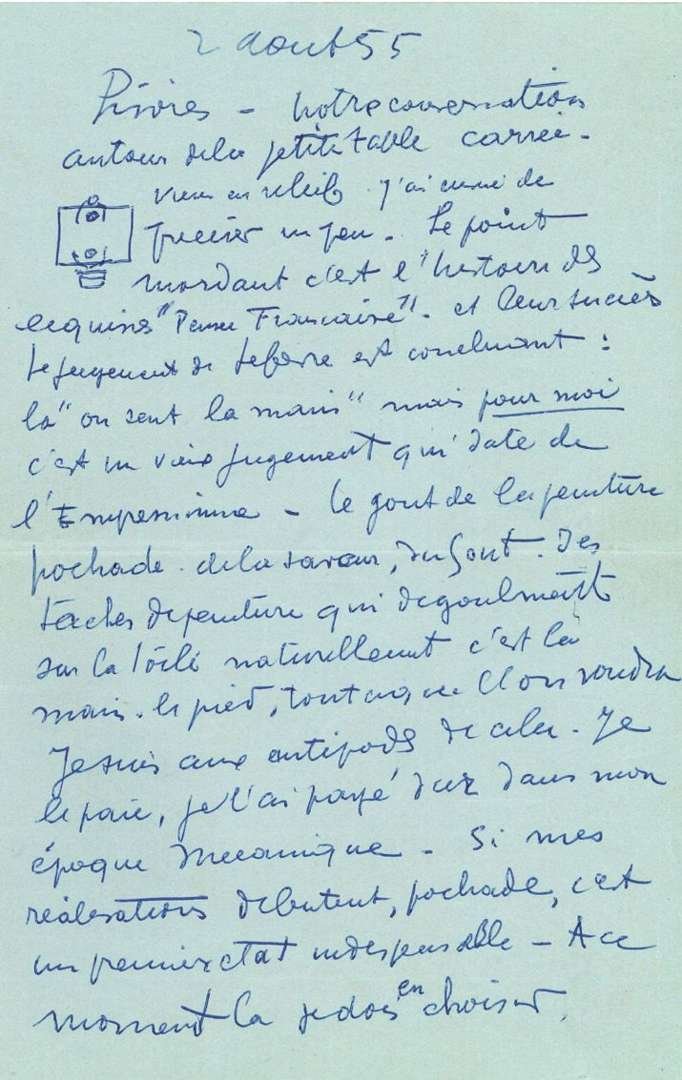 2 aout 55
notre conversation
autour de la petite table carrée -
vien en relief. J'ai envie de
preciser un peu - Le point
mordant c'est l'histoire des
"Pensee Francaise" - et leur succès
le jugement de est concluant :
là "on sent la main" mais pour moi
c'est un vieux jugement qui date de
l' - le gout de la peinture
pochade. de la saveur, du gout. Des
taches de peinture qui degoulinent
sur la toile naturellement c'est la
main. le pied, tout ce que l'on voudra
Je suis aux antipodes de cela - Je
le paie, je l'ai payé dur dans mon
époque mecanique - Si mes
réalisations debutent, pochade, c'est
un premier etat indispensable - A ce
moment la je dois en choisir.